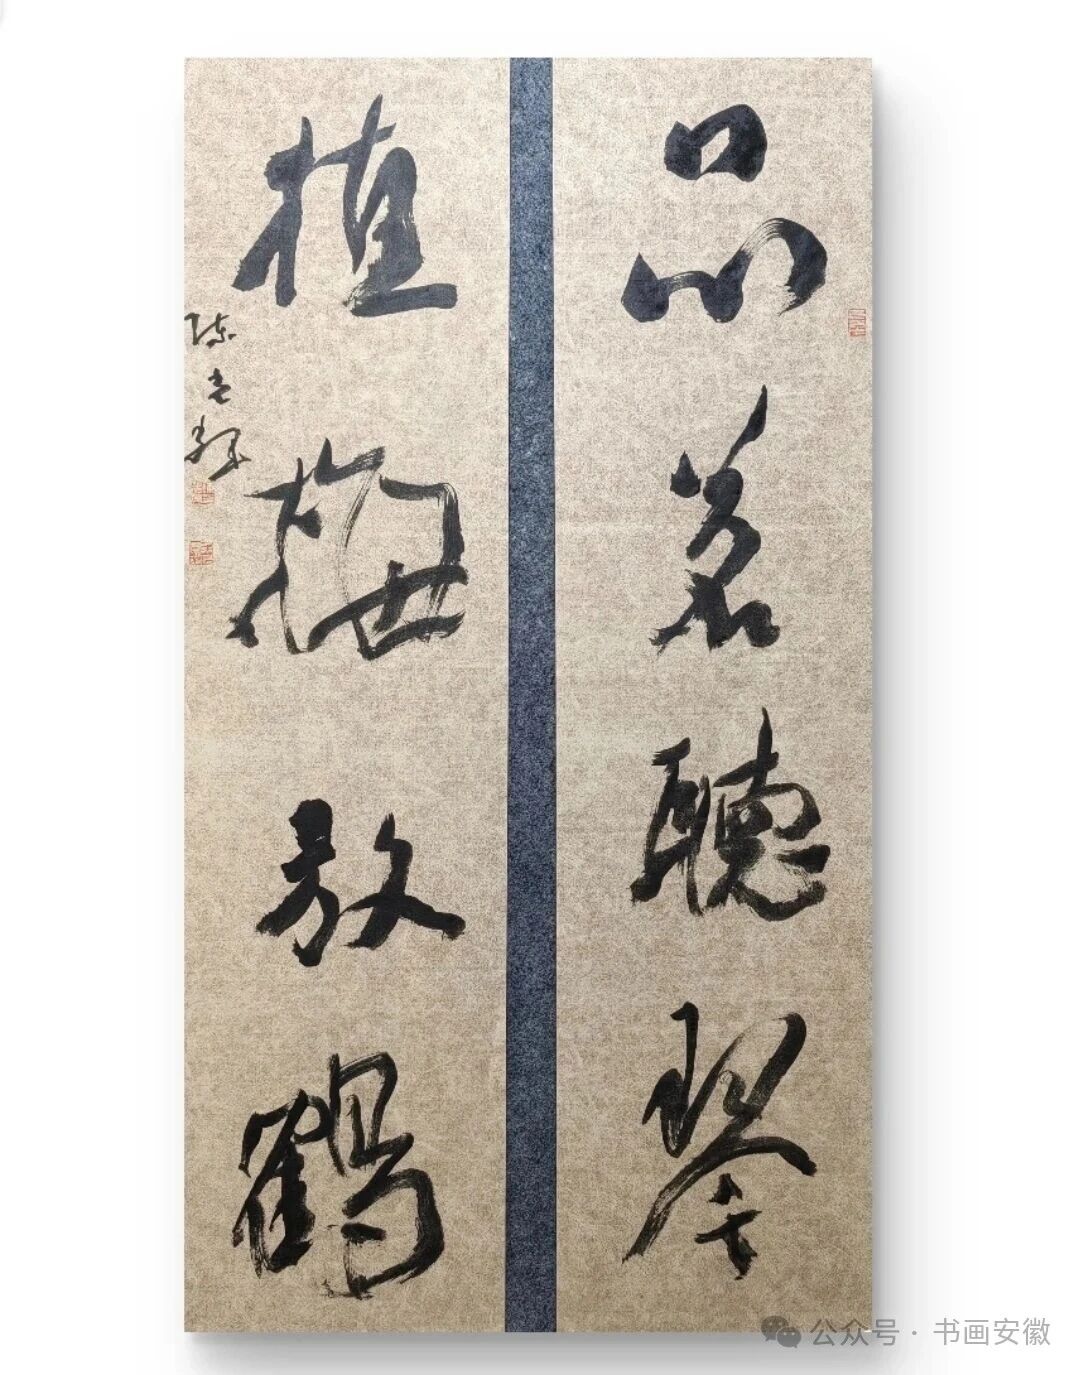 品茗聽琴
植梅放鶴
公众号 · 书画安徽